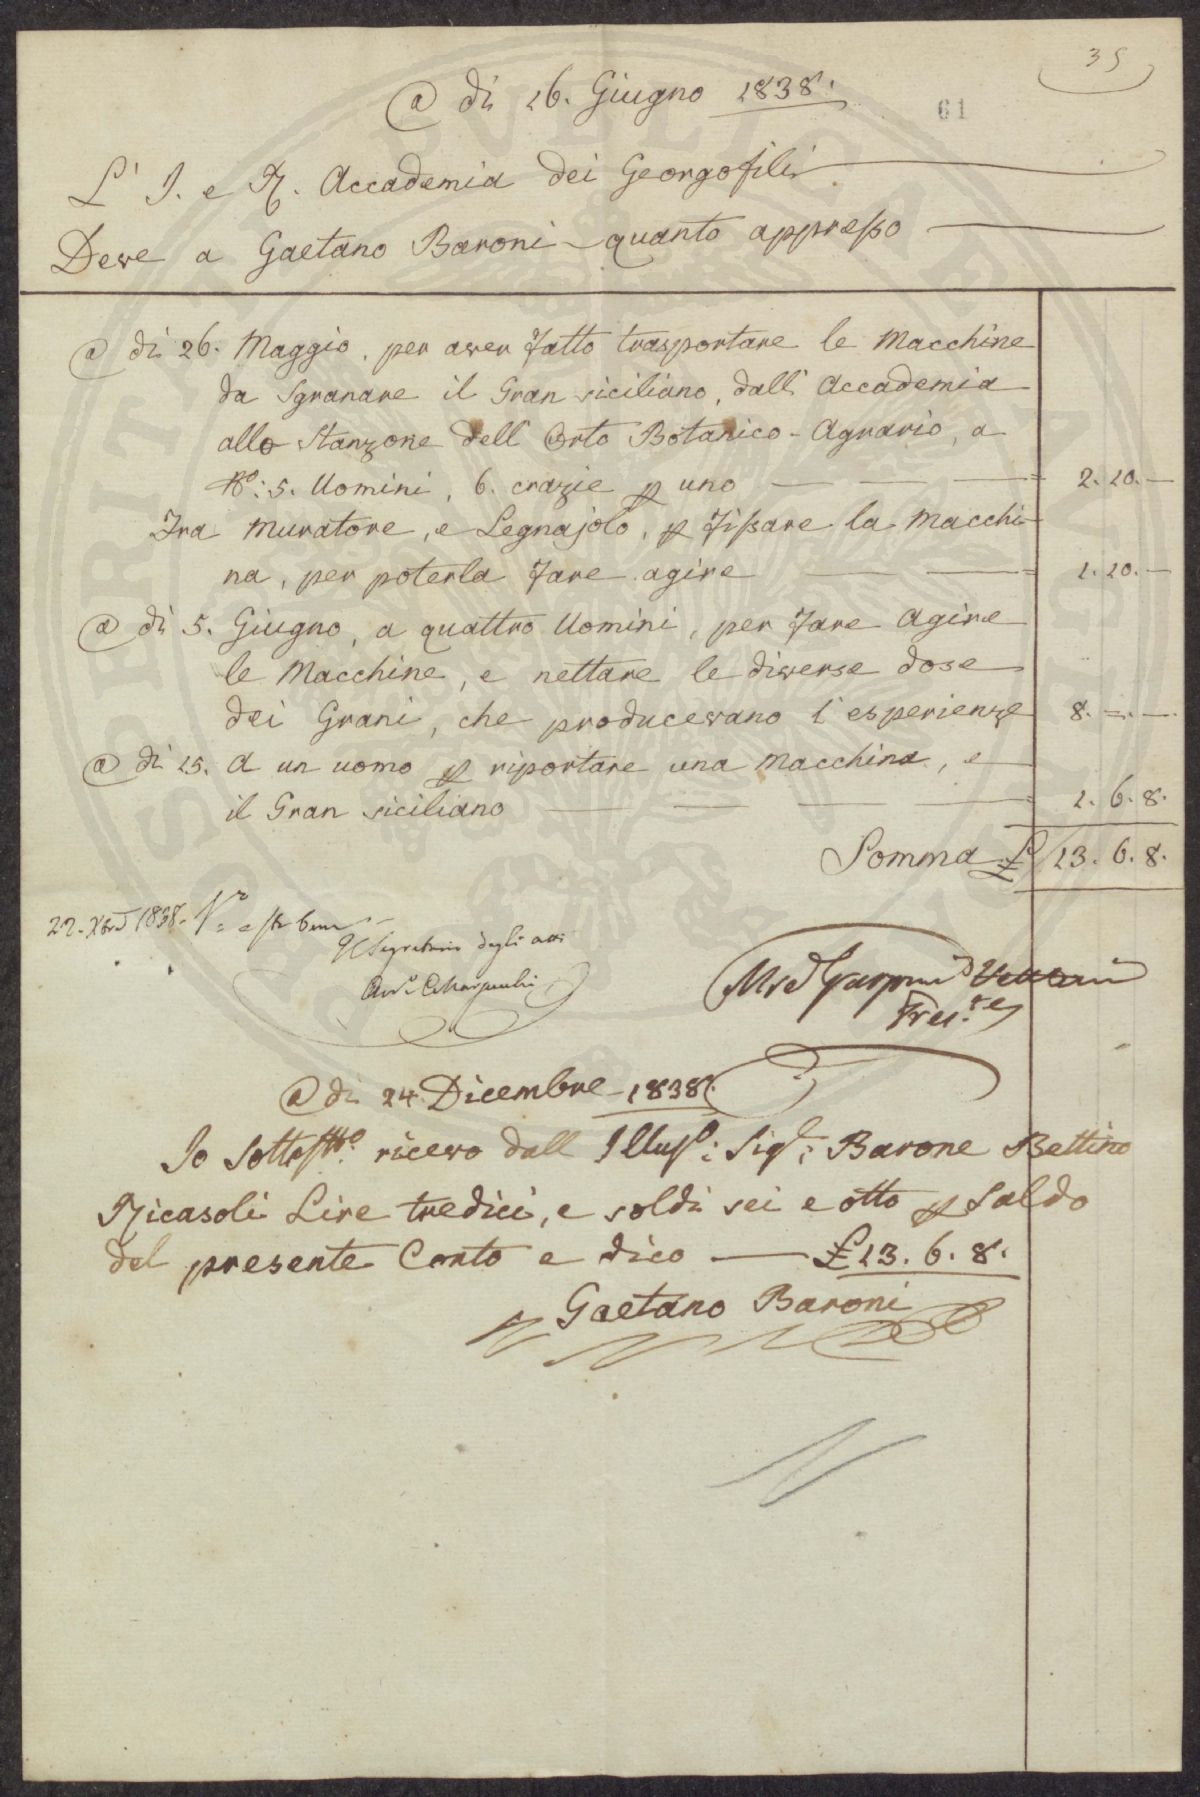 35
@ di 16. Giugno 1838.
61
L' I. e R. Accademia dei Georgofili
Deve a Gaetano Baroni quanto appresso
@ di 26. Maggio, per aver fatto trasportare le Macchine
da Sgranare il Gran siciliano, dall' Accademia
allo Stanzone dell' Orto Botanico-Agrario, a
No: 5. Uomini, 6. crazie p uno = 2. 10. —
Tra Muratore, e Legnajolo, p fissare la Macchi-
na, per poterla fare agire = 1. 10. —
@ di 5. Giugno, a quattro Uomini, per fare agire
le Macchine, e nettare le diverse dose
dei Grani, che producevano l'esperienze 8. =. —
@ di 15. a un uomo p riportare una Macchina, e
il Gran siciliano = 1. 6. 8.
Somma £ 13. 6. 8.
22. Xbre 1838. Vo: e sta bene
Il Segretario degli atti
Pres.te
@ di 24 Dicembre 1838.
Io Sottostto. ricevo dall Illuso: Sigr: Barone Bettino
Ricasoli Lire tredici, e soldi sei e otto p Saldo
del presente Conto e dico — £ 13. 6. 8.
Gaetano Baroni